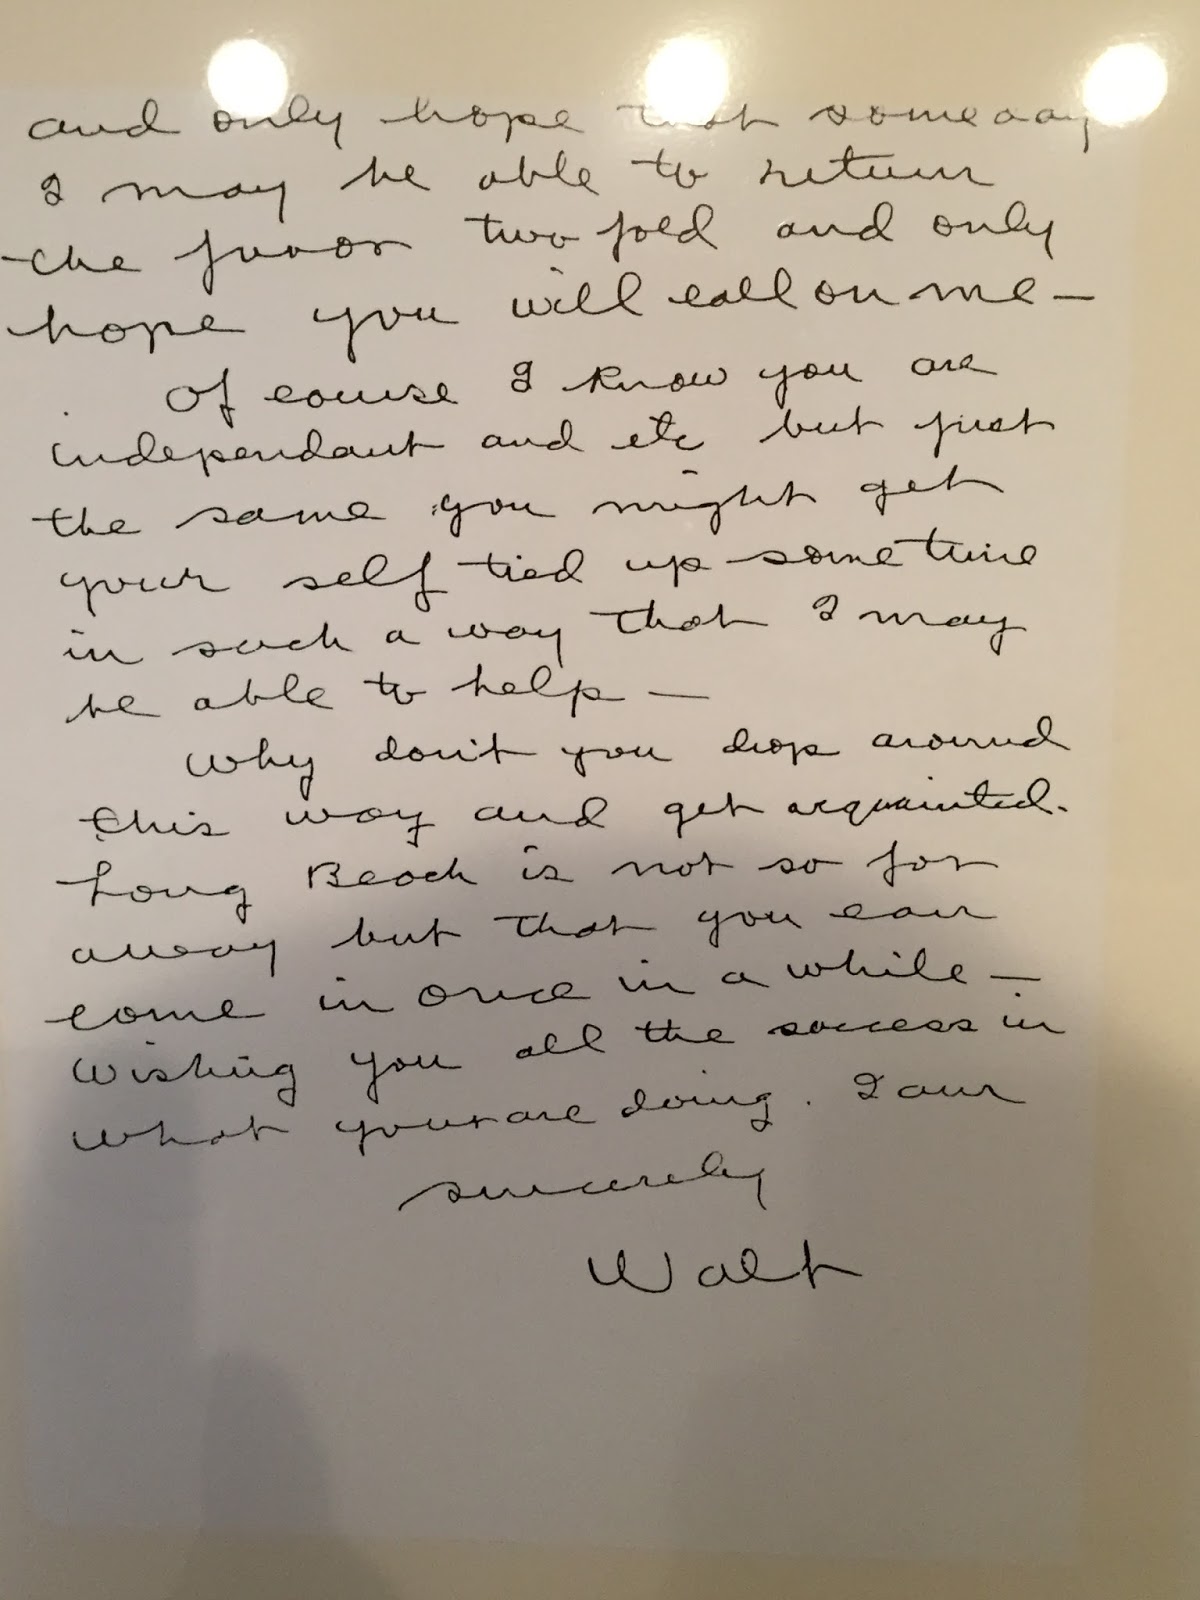 and only hope that someday
I may be able to return
the favor two fold and only
hope you will call on me —
Of course I know you are
independant and etc but just
the same you might get
your self tied up sometime
in such a way that I may
be able to help —
Why don't you drop around
this way and get acquainted.
Long Beach is not so far
away but that you can
come in once in a while —
Wishing you all the success in
what your are doing. I am
sincerely
Walt